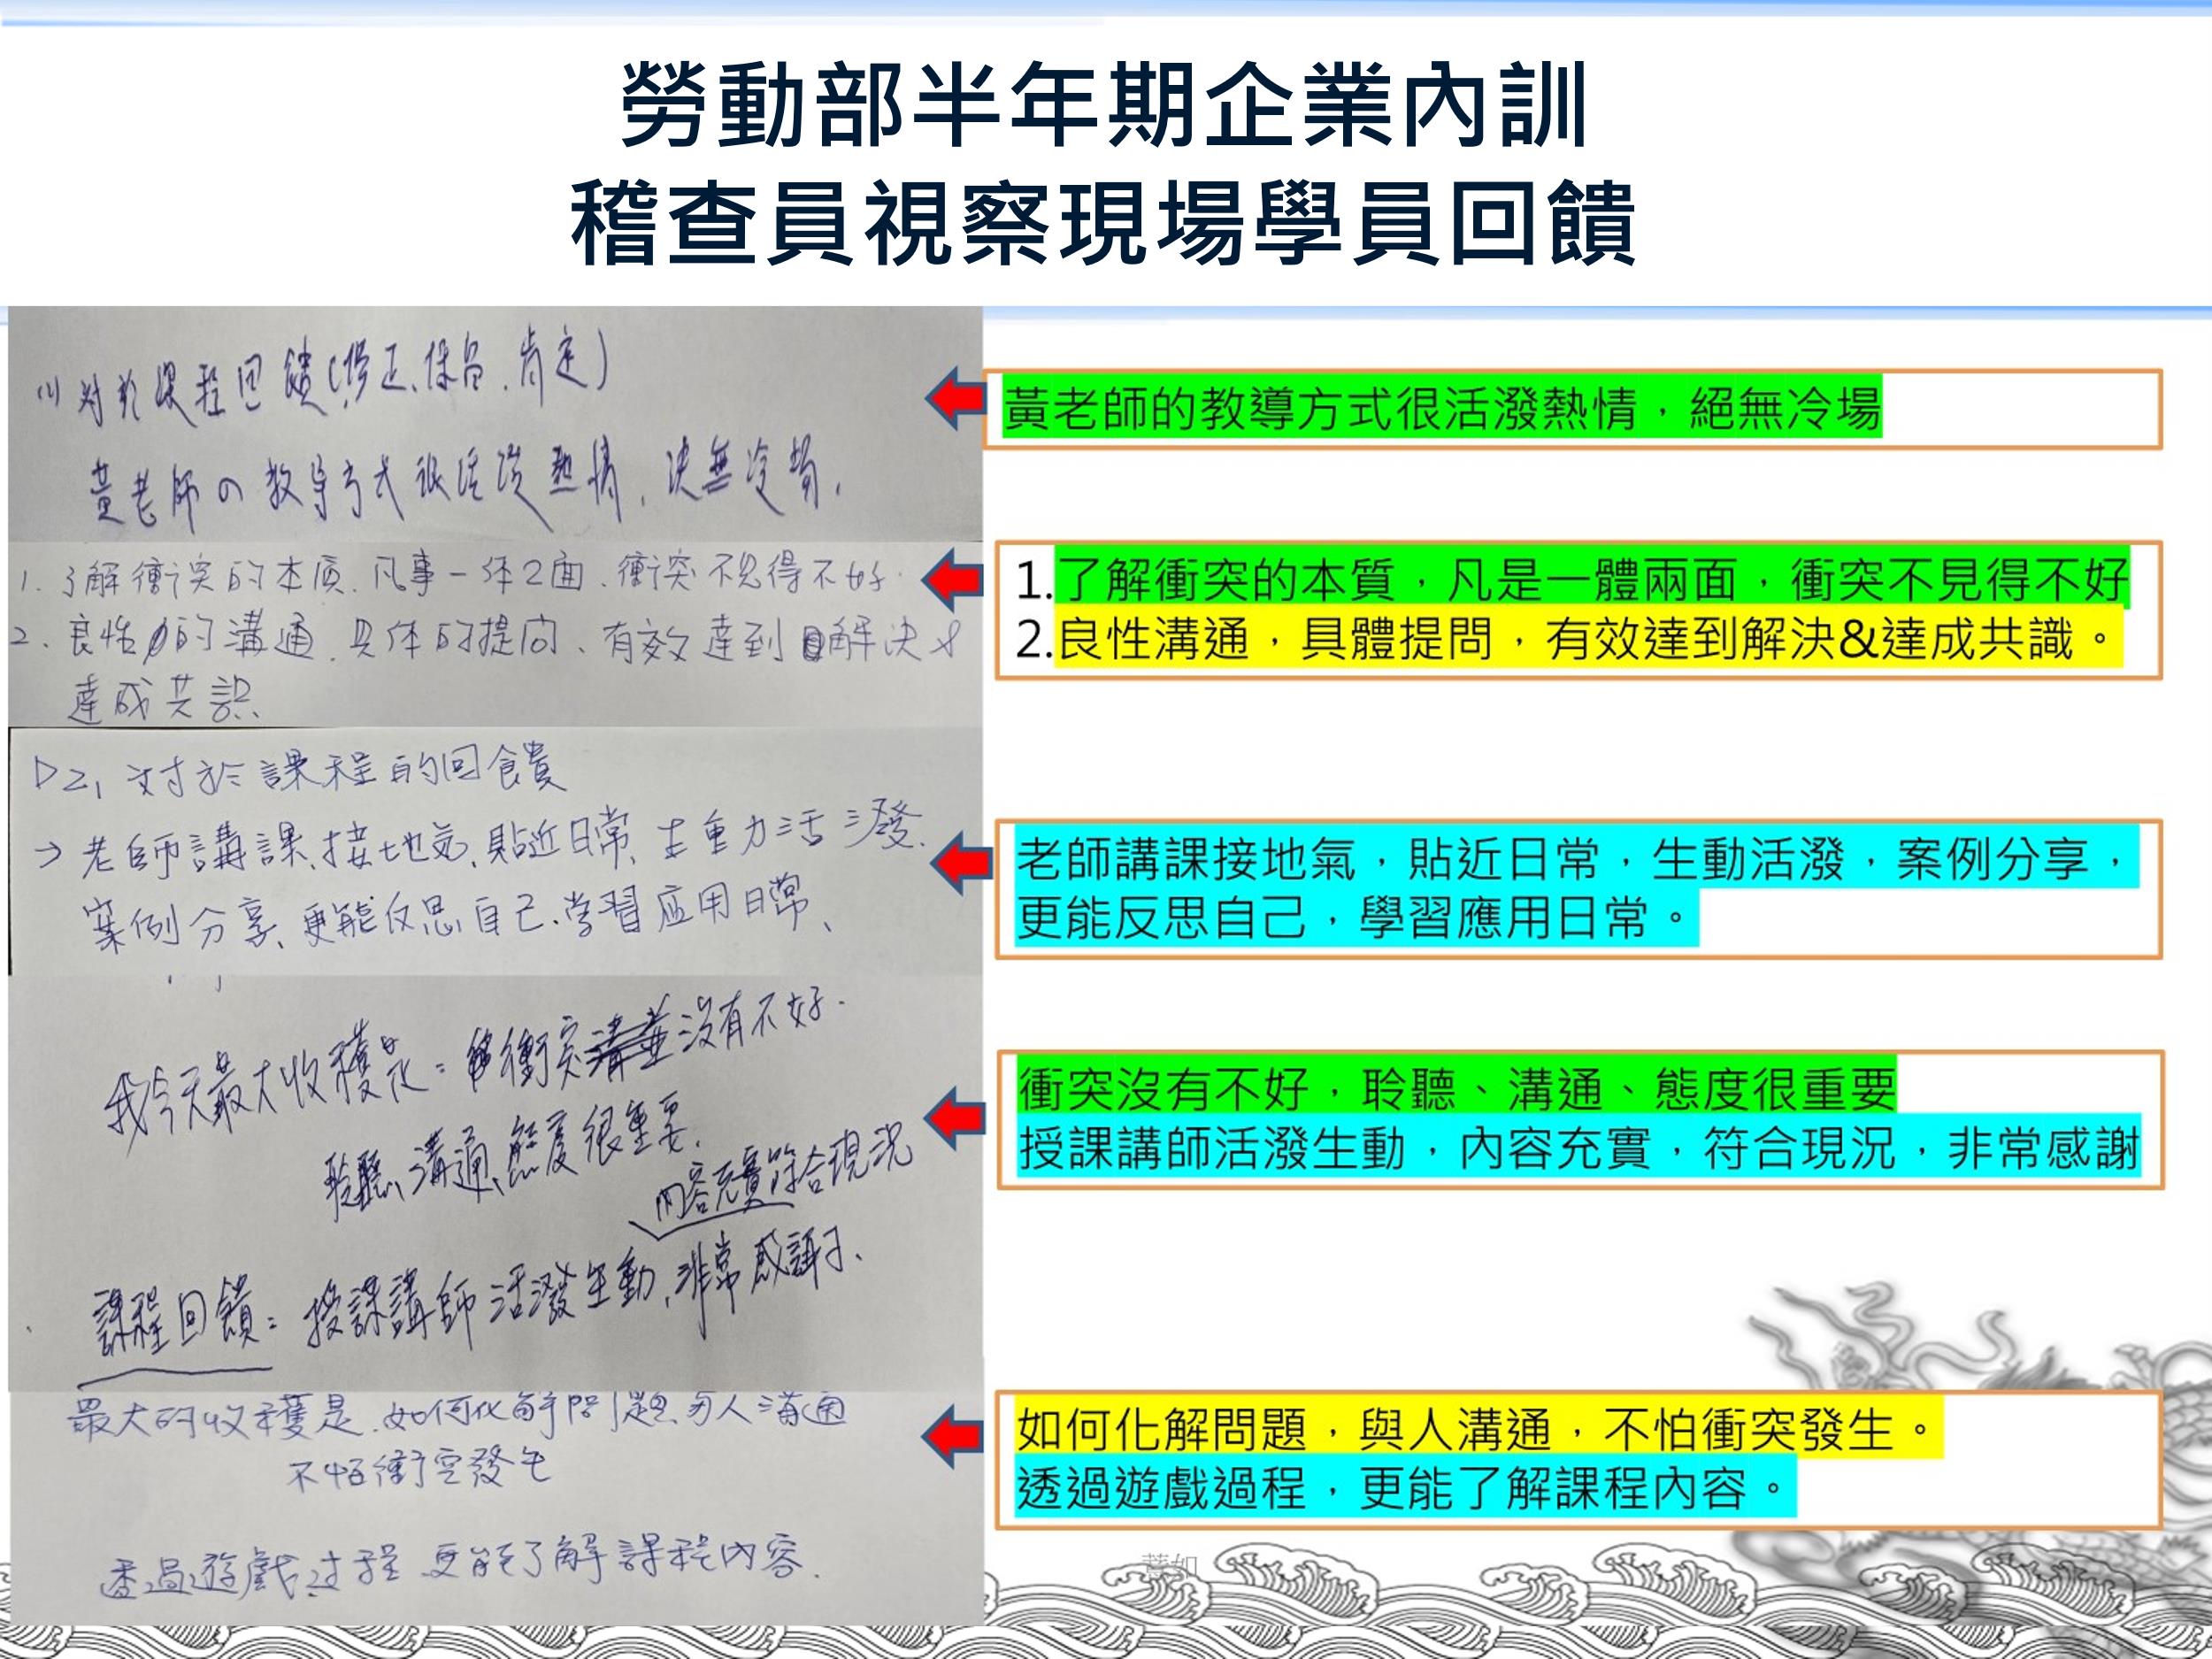 勞動部半年期企業內訓
稽查員視察現場學員回饋
(1) 对於課程回饋(修正、保留、肯定)
黃老師の教导方式很活潑熱情、決無冷場,
黃老師的教導方式很活潑熱情，絕無冷場
1. 了解衝突的本质、凡事一体2面、衝突不見得不好.
2. 良性的溝通、具体的提问、有效達到解決&
達成共識、
1.了解衝突的本質，凡是一體兩面，衝突不見得不好
2.良性溝通，具體提問，有效達到解決&達成共識。
D2, 对於課程的回饋
→ 老師講課、接地気、貼近日常、生動活潑、
案例分享、更能反思自己、学習应用日常、
老師講課接地氣，貼近日常，生動活潑，案例分享，
更能反思自己，學習應用日常。
我今天最大收穫是：衝突並沒有不好.
聆聽、溝通、態度很重要.
內容充實符合現況
課程回饋：授課講師活潑生動,非常感謝、
衝突沒有不好，聆聽、溝通、態度很重要
授課講師活潑生動，內容充實，符合現況，非常感謝
最大的收穫是、如何化解問題、与人溝通
不怕衝突發生
透過遊戲过程 更能了解課程內容.
如何化解問題，與人溝通，不怕衝突發生。
透過遊戲過程，更能了解課程內容。